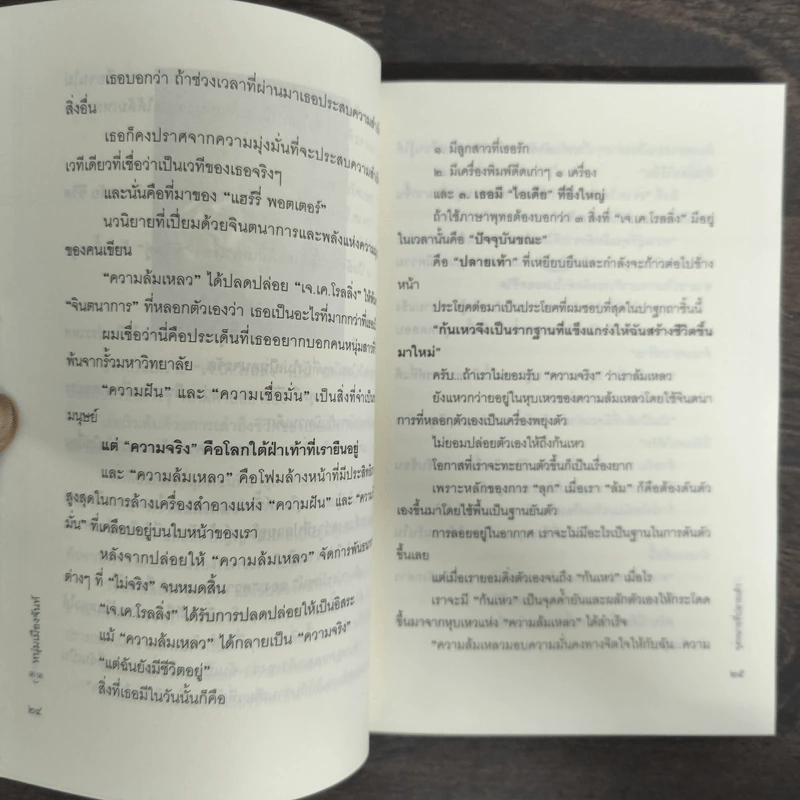 เธอบอกว่า ถ้าช่วงเวลาที่ผ่านมาเธอประสบความสำเร็จ
สิ่งอื่น
เธอก็คงปราศจากความมุ่งมั่นที่จะประสบความสำเร็จ
เวทีเดียวที่เชื่อว่าเป็นเวทีของเธอจริงๆ
และนั่นคือที่มาของ “แฮร์รี่ พอตเตอร์”
นวนิยายที่เปี่ยมด้วยจินตนาการและพลังแห่งความ
ของคนเขียน
“ความล้มเหลว” ได้ปลดปล่อย “เจ.เค.โรลลิ่ง” ให้
“จินตนาการ” ที่หลอกตัวเองว่า เธอเป็นอะไรที่มากกว่าที่
ผมเชื่อว่านี่คือประเด็นที่เธออยากบอกคนหนุ่มสาว
พ้นจากรั้วมหาวิทยาลัย
“ความฝัน” และ “ความเชื่อมั่น” เป็นสิ่งที่จำเป็น
มนุษย์
แต่ “ความจริง” คือโลกใต้ฝ่าเท้าที่เรายืนอยู่
และ “ความล้มเหลว” คือโฟมล้างหน้าที่มีประสิทธิ
สูงสุดในการล้างเครื่องสำอางแห่ง “ความฝัน” และ
มั่น” ที่เคลือบอยู่บนใบหน้าของเรา
หลังจากปล่อยให้ “ความล้มเหลว” จัดการพันธนา
ต่างๆ ที่ “ไม่จริง” จนหมดสิ้น
“เจ.เค.โรลลิ่ง” ได้รับการปลดปล่อยให้เป็นอิสระ
แม้ “ความล้มเหลว” ได้กลายเป็น “ความจริง”
“แต่ฉันยังมีชีวิตอยู่”
สิ่งที่เธอมีในวันนั้นก็คือ
หนุ่มเมืองจันท์
๒๔
๑. มีลูกสาวที่เธอรัก
๒. มีเครื่องพิมพ์ดีดเก่าๆ ๑ เครื่อง
และ ๓. เธอมี “ไอเดีย” ที่ยิ่งใหญ่
ถ้าใช้ภาษาพุทธต้องบอกว่า ๓ สิ่งที่ “เจ.เค.โรลลิ่ง” มีอยู่
ในเวลานั้นคือ “ปัจจุบันขณะ”
คือ “ปลายเท้า” ที่เหยียบยืนและกำลังจะก้าวต่อไปข้าง
หน้า
ประโยคต่อมาเป็นประโยคที่ผมชอบที่สุดในปาฐกถาชิ้นนี้
“ก้นเหวจึงเป็นรากฐานที่แข็งแกร่งให้ฉันสร้างชีวิตขึ้น
มาใหม่”
ครับ...ถ้าเราไม่ยอมรับ “ความจริง” ว่าเราล้มเหลว
ยังแหวกว่ายอยู่ในหุบเหวของความล้มเหลวโดยใช้จินตนา
การที่หลอกตัวเองเป็นเครื่องพยุงตัว
ไม่ยอมปล่อยตัวเองให้ถึงก้นเหว
โอกาสที่เราจะทะยานตัวขึ้นก็เป็นเรื่องยาก
เพราะหลักของการ “ลุก” เมื่อเรา “ล้ม” ก็คือต้องดันตัว
เองขึ้นมาโดยใช้พื้นเป็นฐานยันตัว
การลอยอยู่ในอากาศ เราจะไม่มีอะไรเป็นฐานในการดันตัว
ขึ้นเลย
แต่เมื่อเรายอมดิ่งตัวเองจนถึง “ก้นเหว” เมื่อไร
เราจะมี “ก้นเหว” เป็นจุดค้ำยันและผลักตัวเองให้กระโดด
ขึ้นมาจากหุบเหวแห่ง “ความล้มเหลว” ได้สำเร็จ
“ความล้มเหลวมอบความมั่นคงทางจิตใจให้กับฉัน...ความ
๒๕